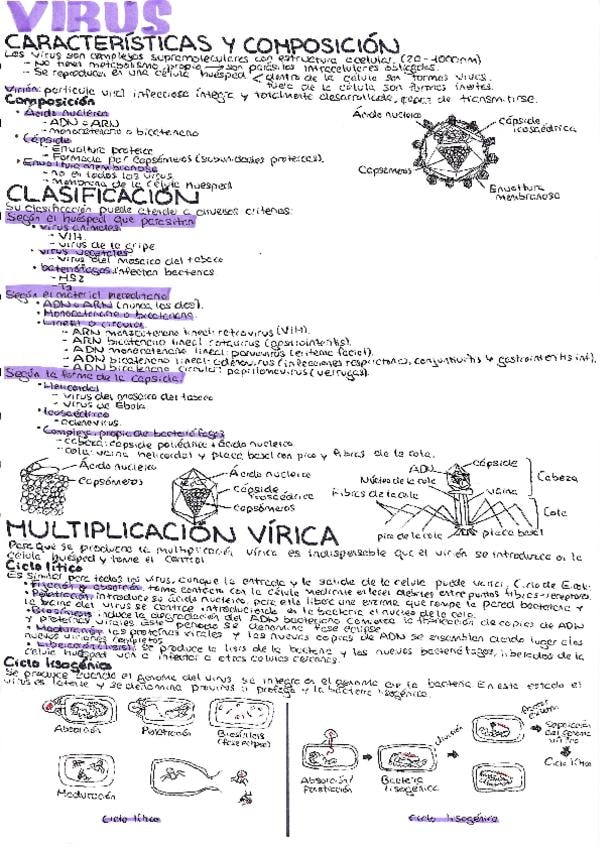 VIRUS
CARACTERÍSTICAS Y COMPOSICIÓN
Los virus son complejos supramoleculares con estructura acelular. (20-4000nm)
- No tienen metabolismo propio → son parásitos intracelulares obligados.
- Se reproducen en una célula huésped dentro de la célula son formas vivas.
fuera de la célula son formas inertes.
Virión: partícula viral infecciosa íntegra y totalmente desarrollada, capaz de transmitirse.
Composición
• Ácido nucleico
- ADN o ARN
- monocatenario o bicatenario
• Cápside
- Envoltura proteica
- Formada por capsómeros (subunidades proteicas).
• Envoltura membranosa
- no en todos los virus
- membrana de la célula huésped
Ácido nucleico
Cápside icosaédrica
Capsómeros
Envoltura membranosa
CLASIFICACIÓN
Su clasificación puede atender a diversos criterios:
Según el huésped que parasitan
• virus animales
- VIH
- virus de la gripe
• virus vegetales
- virus del mosaico del tabaco
• bacteriófagos: infectan bacterias
Según el material hereditario
• ADN o ARN (nunca los dos).
• Monocatenario o bicatenario.
• Lineal o circular
- ARN monocatenario lineal: retrovirus (VIH).
- ARN bicatenario lineal: rotavirus (gastroenteritis).
- ADN monocatenario lineal: parvovirus
- ADN bicatenario lineal: adenovirus (infecciones respiratorias, conjuntivitis y gastroenteritis inf).
- ADN bicatenario circular: papilomavirus (verrugas).
Según la forma de la cápsida:
• Helicoidal
- virus del mosaico del tabaco
- virus de Ébola
• Icosaédrica
- adenovirus.
• Compleja: propia de bacteriófagos
- cabeza: cápside poliédrica + ácido nucleico
- cola: vaina helicoidal y placa basal con pico y fibras de la cola.
Ácido nucleico
Capsómeros
Ácido nucleico
Cápside icosaédrica
Capsómeros
ADN
cápside
Cabeza
Núcleo de la cola
vaina
Fibras de la cola
Cola
pico de la cola
placa basal
MULTIPLICACIÓN VÍRICA
Para que se produzca la multiplicación vírica es indispensable que el virión se introduzca en la
célula huésped y tome el control
Ciclo lítico
Es similar para todos los virus, aunque la entrada y la salida de la célula puede variar. Ciclo de E.coli:
• Fijación o absorción: toma contacto con la célula mediante enlaces débiles entre puntos fibras-receptora.
• Penetración: introduce su ácido nucleico, para ello libera una enzima que rompe la pared bacteriana y
la vaina del virus se contrae introduciendo en la bacteria el núcleo de la cola.
• Biosíntesis: induce la degradación del ADN bacteriano Comienza la fabricación de copias de ADN
y proteínas virales Este periodo se denomina fase eclipse
• Maduración: las proteínas virales y las nuevas copias de ADN se ensamblan dando lugar a los
nuevos viriones completos
• Liberación: se produce la lisis de la bacteria y los nuevos bacteriófagos, liberados de la
célula huésped van a infectar a otras células cercanas.
Ciclo lisogénico
Se produce cuando el genoma del virus se integra en el genoma de la bacteria En este estado el
virus es latente y se denomina provirus o profago y la bacteria lisogénica.
Absorción
Penetración
Biosíntesis
(fase eclipse)
Maduración
Ciclo lítico
Absorción/
Penetración
Bacteria
lisogénica
división
factor externo
Separación
del genoma
vírico
Ciclo lítico
Ciclo lisogénico